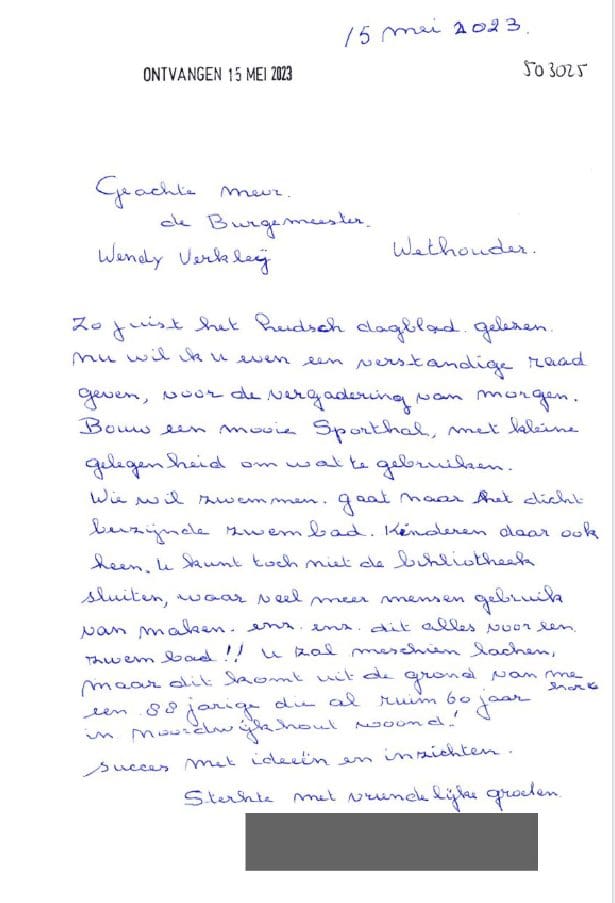 15 mei 2023.
ONTVANGEN 15 MEI 2023
503025
Geachte mevr.
de Burgemeester.
Wendy Verkleij Wethouder.
Zo juist het Leidsch dagblad gelezen.
nu wil ik u even een verstandige raad
geven, voor de vergadering van morgen.
Bouw een mooie Sporthal, met kleine
gelegenheid om wat te gebruiken.
Wie wil zwemmen. gaat naar het dicht
bijzijnde zwembad. Kinderen daar ook
heen. U kunt toch niet de bibliotheek
sluiten, waar veel meer mensen gebruik
van maken. enz. enz. dit alles voor een
zwembad!! U zal meschien lachen,
maar dit komt uit de grond van me
hart
een 88 jarige die al ruim 60 jaar
in Noordwijkhout woond!
succes met ideeën en inzichten.
Sterkte met vriendelijke groeten.